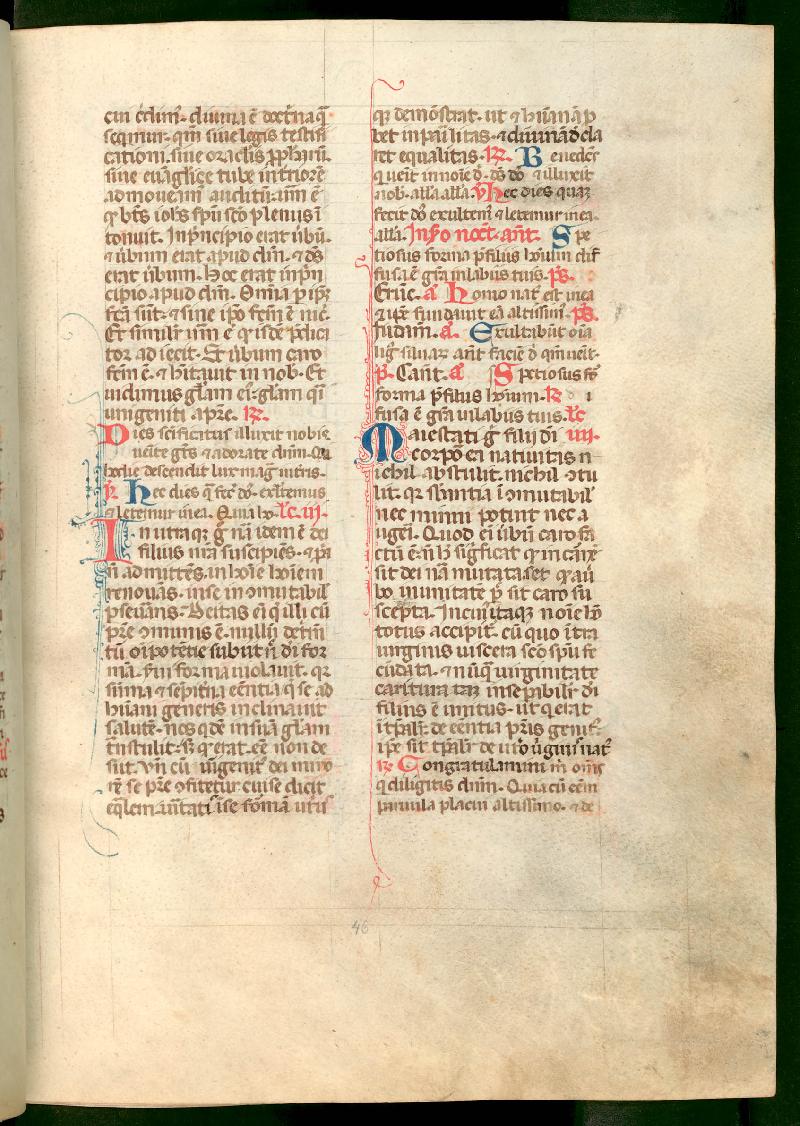 diuina ē doctrīa q̄
seq̄mur. qm̄ siue legis testifi
cationi. siue oraclis ꝓphārū.
siue euāglice tube intiorē
admoueam᷒ auditū. um̄ ē
q̄ bt̄s ioh̄s sp̄u sc̄o plenus ī
tonuit. In p̄ncipio erat ūbū.
⁊ ūbum erat apud dm̄. ⁊ dꝰ
erat ūbum. Hoc erat in p̄n
cipio apud dm̄. Om̄ia ꝑ ip̄ꝫ
fc̄a sūt. ⁊ sine ip̄o fc̄m ē nic̄.
Et simil'r um̄ ē q̄ isdē p̄dica
tor adiecit. Et ūbum caro
fc̄m ē. ⁊ h̄itauit in nob̄. Et
uidimus gl̄am ei᷒. gl̄am q̄i
unigeniti a pr̄e. ℟.
Dies sc̄ificatus illuxit nobis
uēite gt̄s ⁊ adorate dn̄m. Q̄a
hodie descendit lux mag᷒ in t̄ris.
℟. Hec dies q̄ fec̄ dꝰ. exltemus
⁊ letemur ī ea. Quia ho. lc̄. iij.
In utraq̄ g̊ nā idem ē dei
filius nr̄a suscipiēs. ⁊ ꝓpa
n̄ admittēs. in hoīe hoīem
renouās. in se in ɔmutabil᷒
pseuās. Deitas ei q̄ illi cū
pr̄e ɔmunis ē. nullū detim̄
tū oīpotētie subiit. n̄ dei for
mā. s̄ui forma uiolauit. qꝛ
sūma ⁊ sēpit̄na eēntia q̄ se ad
hūani generis inclinauit
salutē. nos q̄dē in suā gl̄am
tn̄stulit. sꝫ q̄ erat. eē non de
siit. Vn̄ cū unigenit᷒ dei mino
rē se pr̄e ɔfitetur. cui se dicit
eq̄lem. uītati᷒ ī se formā utri᷒
qꝫ demōstrat. ut ⁊ hūanā ꝓ
bet inpailitas. ⁊ diuinā decla
ret equalitas. ℟. Benedict᷒
q̄ uenit in noīe dī. dꝰ dō ⁊ illuxit
nob̄. alla alla. ℣ Hec dies quaꝫ
fecit dō exultem᷒ ⁊ letemur in ea.
alla. In scd̄o noct̄. ant̄. Spe
tiosus forma p̄ filius hoīum dif
fusa ē grā in labiis tuis. ps̄.
Eruc̄. a᷒ Homo nat᷒ est in ea
⁊ ip̄e fundauit eā altissim᷒. ps̄.
fūdam̄. a᷒. Exultabūt oīa
lig᷒ siluaꝝ ant̄ faciē dī qm̄ uēit.
ps̄. Cant. a᷒ Spetiosus
forma p̄ filius hoīum. ℟ di
fusa ē grā in labiis tuis. lc̄
Maiestati g̊ filij dī iiii.
corpoea natiuitas n
ichil abstulit. nichil ɔtu
lit. qꝛ sb̄stantia īɔmutabil᷒
nec minui potuit nec a
ugeri. Quod ei ūbū caro fa
ctū ē. n̄ h̄ sig̊ficat q̄ in carnē
sit dei nā mutata. set q̄ a ū
bo in unitatē ꝑsōe sit caro su
scepta. In cui᷒ itaqꝫ noīe hō
totus accipit᷒. cū quo ītra
uirginis uiscera sc̄o sp̄u fe
cūdata. ⁊ nūq̄ uirginitate
caritura tā inseꝑabil'r dī
filius ē unitus. ut q̄ erat
ītp̄al'r de eēntia pr̄is genit᷒.
ip̄e sit tp̄al'r de ut̄o uginis nat᷒
℟. Congratulamini m̄ om̄s
q̄ diligitis dn̄m. Quia cū eēm
paruula placui altissimo. ⁊ de
46